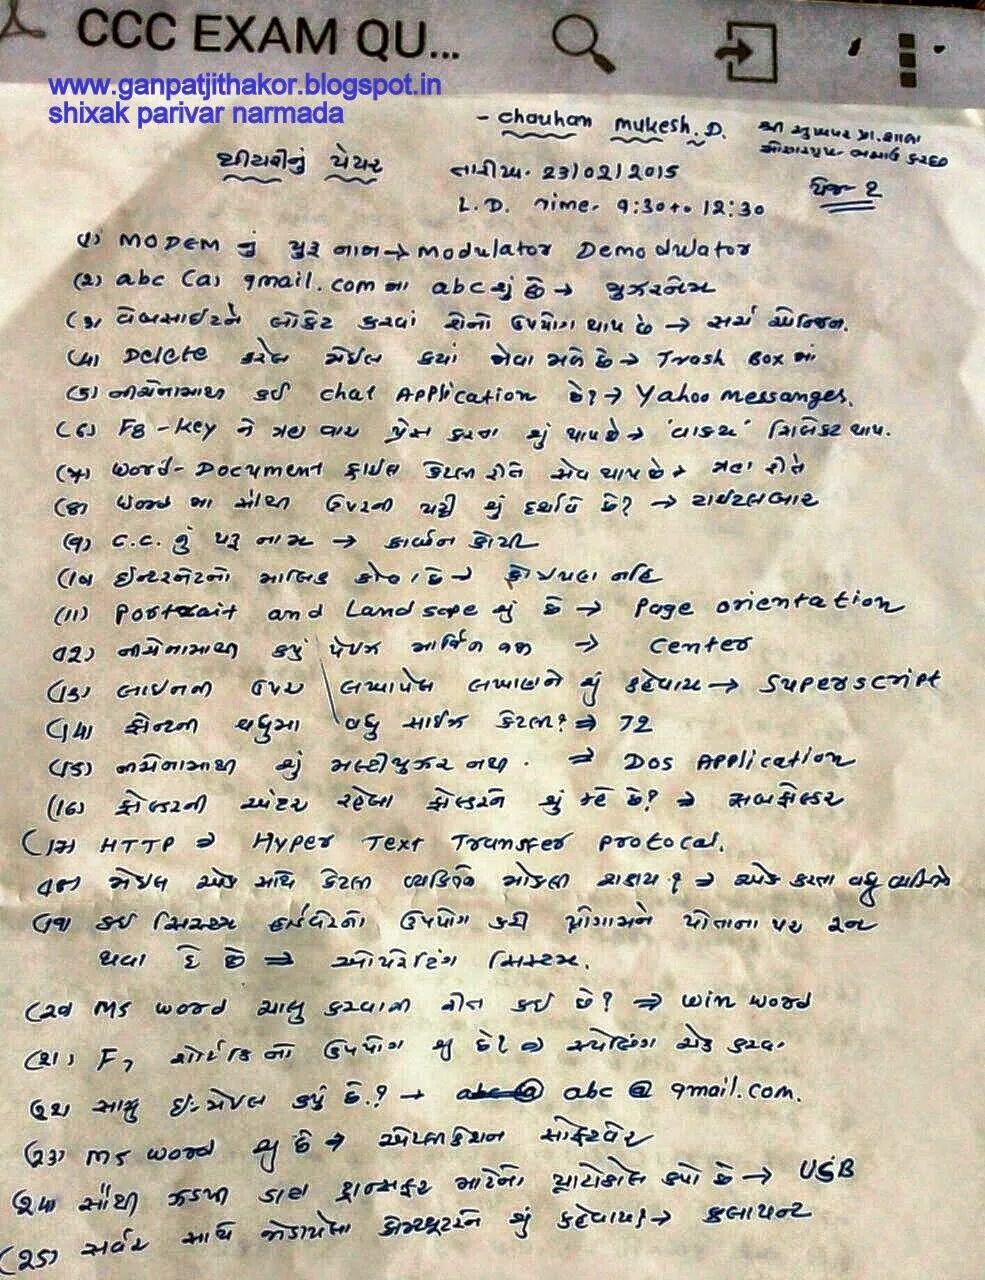 CCC EXAM QU...
www.ganpatjithakor.blogspot.in
shixak parivar narmada
- Chauhan Mukesh.D.
થીયરીનું પેપર
તારીખ. 23/02/2015
પેજ 2
L.D. Time. 9:30 to 12:30
(૧) MODEM નું પુરૂ નામ → Modulator Demodulator
(૨) abc (a) gmail.com મા abc શું છે → યુઝરનેમ
(૩) વેબસાઈટને લોકેટ કરવા શેનો ઉપયોગ થાય છે → સર્ચ એન્જિન.
(૪) Delete કરેલ મેઈલ ક્યાં જોવા મળે છે → Trash Box માં
(૫) નીચેનામાથી કઈ chat Application છે? → Yahoo messanges.
(૬) F8 - key ને ત્રણ વાર પ્રેસ કરતા શું થાય છે → 'વાક્ય' સિલેક્ટ થાય.
(૭) word - Document ફાઈલ કેટલી રીતે સેવ થાય છે → ત્રણ રીતે
(૮) વર્ડ મા સૌથી ઉપરની પટ્ટી શું દર્શાવે છે? → ટાઈટલબાર
(૯) C.C. નું પુરૂ નામ → કાર્બન કોપી
(૧૦) ઈન્ટરનેટનો માલિક કોણ છે → કોઈપણ નહિ
(11) Portrait and Landscape શું છે → Page orientation
(૧2) નીચેનામાથી ક્યું પેઈજ માર્જિન નથી → Center
(૧૩) લાઈનની ઉપર લખાયેલ લખાણને શું કહેવાય → Superscript
(૧૪) ફોન્ટની વધુમા વધુ સાઈઝ કેટલી? ⇒ 72
(૧૫) નીચેનામાથી શું મલ્ટીયુઝર નથી. ⇒ Dos Application
(16) ફોલ્ડરની અંદર રહેલા ફોલ્ડરને શું કહે છે? ⇒ સબફોલ્ડર
(૧૭) HTTP ⇒ Hyper Text Transfer Protocal.
(૧૮) મેઈલ એક સાથે કેટલી વ્યક્તિને મોકલી શકાય? ⇒ એક કરતા વધુ વ્યક્તિને
(૧૯) કઈ સિસ્ટમ હાર્ડવેરનો ઉપયોગ કરી પ્રોગ્રામને પોતાના પર રન
થવા દે છે ⇒ ઓપરેટિંગ સિસ્ટમ.
(૨૦) MS word ચાલુ કરવાની રીત કઈ છે? ⇒ win word
(૨૧) F7 શોર્ટકી નો ઉપયોગ શું છે? ⇒ સ્પેલિંગ ચેક કરવા.
(૨૨) સાચુ ઈ-મેઈલ ક્યું છે.? → abc @ gmail.com.
(૨૩) MS word શું છે → એપ્લીકેશન સોફ્ટવેર
(૨૪) સૌથી ઝડપી ડાટા ટ્રાન્સફર માટેનો પ્રોટોકોલ ક્યો છે → USB
(૨૫) સર્વર સાથે જોડાયેલા કોમ્પ્યુટરને શું કહેવાય? → ક્લાયન્ટ